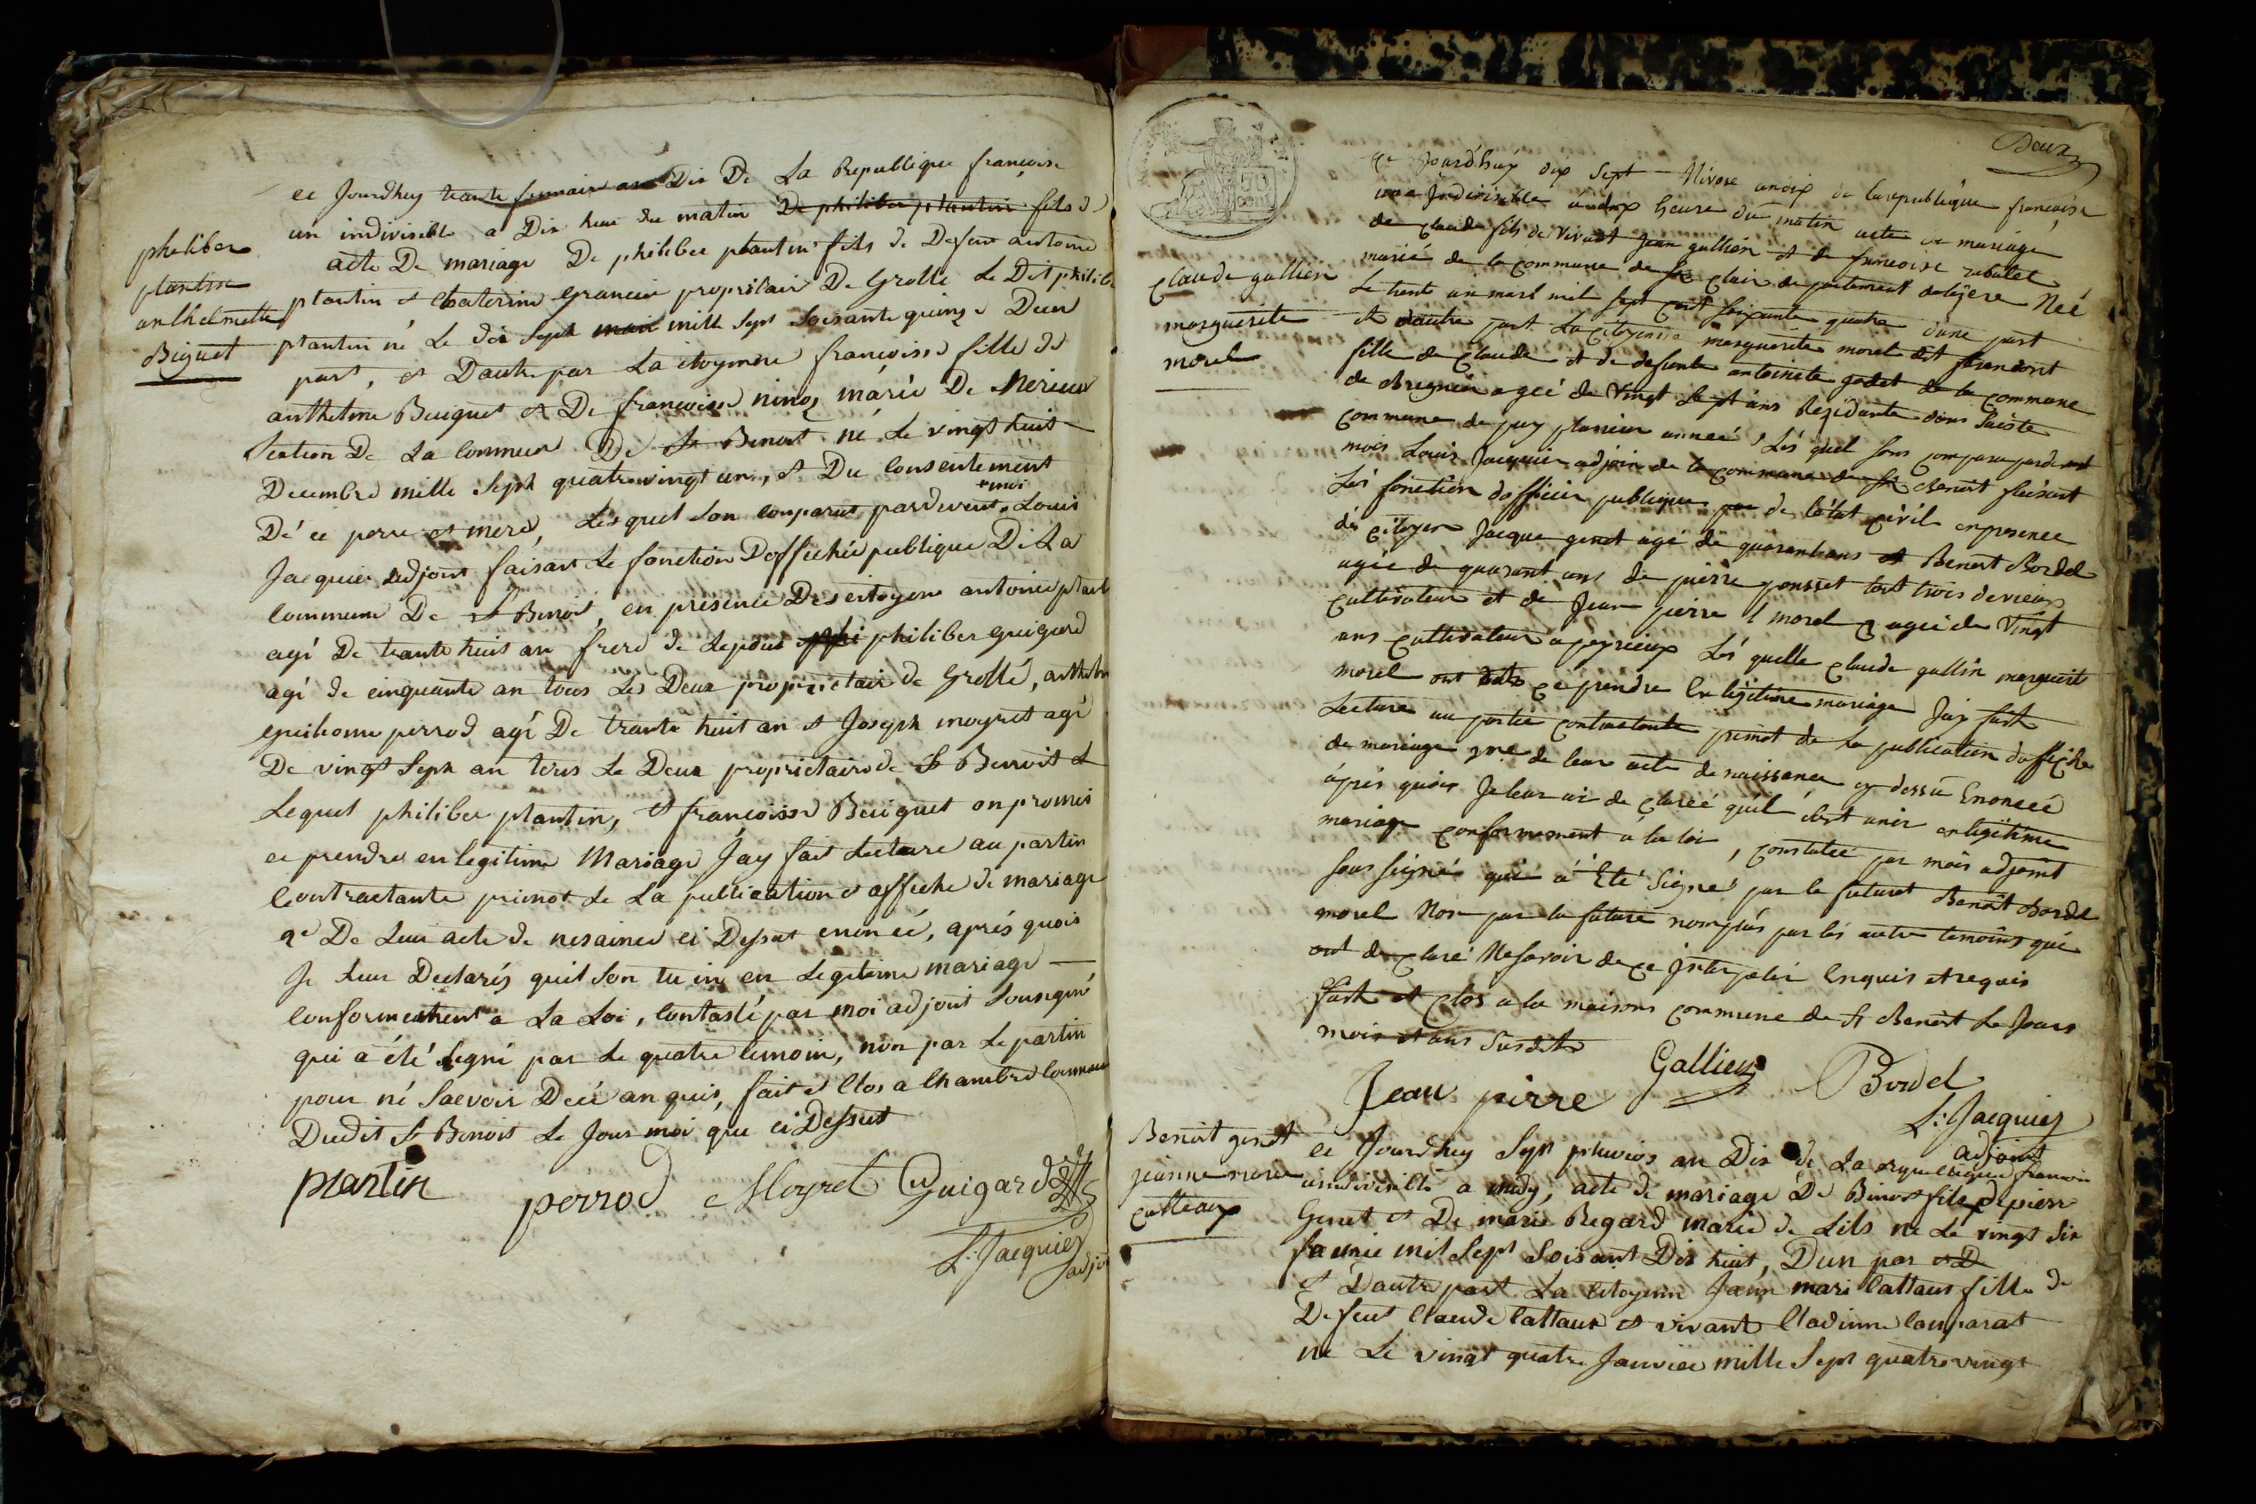 philiber
plantin
anthelmette
Biguet
ce Jourdhuy trante frimair an Dix De La Republique françoise
un indivisible a Dix heur du matin De philiber plantin fils d
acte De mariage De philiber plantin fils de Defunt antoine
plantin et Chaterine Grancin propriétair De Grolle Le Dit philibe
plantin né Le dix Sept mai mille Sept Soisante quinze Deun
part, et Dautre par La citoyenne françoisse fille de
anthelme Buiguet et De françoisse ninoz márié De Merieu
Section De La Commun De St Benoit né Le vingt huit
Decembre mille Sept quatrevingt un, et Du Consentement
Dé ce perre et mere, Lesquel Son conparut pardevent moi Louis
Jacquier adjoint faisant Le fonction Doffichée publique De La
Commune De St Benoit, en presence Des citoyens antoine plant
agé De trante huit an frere de Lepoue phi philiber guigard
agé de cinquante an tous Les Deux proprietair de Grollé, anthelm
guihome perrod agé De trante huit an et Joseph moyret agé
De vingt Sept an tous Le Deux proprietaire de St Benoit et
Lequel philiber plantin, et françoisse Beuiguet on promis
ce prendre en legitime Mariage Jay fait Lecture au partin
Contractante primot de La publication et affiche de mariage
2e De Leur acte de nesaince ci Dessut enoncé, aprés quois
Je Leur Declarés quil Son tu ini en Legitime mariage
Conformement a La Loi, Contasté par moi adjoint Sousigné
qui a été Signé par Le quatre temoin, non par Le partin
pour né Saevoir Deü an quis, fait et Clos a Chambre Commune
Dudit St Benoit Le Jour moi que ci Dessut
plantin
perrod Moyret Guigard
L: Jacquier
adjoi
Deux
Claude gallien
marguerite
morel
Ce Jourdhuy dix Sept Nivose an dix de la republique françoise
une Jndivisible a dix heure du matin acte de mariage
de claude fils de vivant Jean gallien et de francoise rubellet
marié de la commune de St Clair de partement de lisere Né
Le trente un mars mil Sept cent soixante quatre dune part
et dautre part La Citoyenne marguerite morel
fille de Claude et de defunte antoinete godet de la commune
de Bregnier agée de vingt Sept ans Rezidante dans Saiste
commune de puy plancieu année, Les quel Sont comparu pardevent
mois Louis Jacquier adjoin de la commune de St Benoit faisant
Les fonction dofficier publique par de l'état civil en presence
des citoyen Jacque genet agé de quarent ans et Benoit Bordel
agée de quarant ans de pierre ponsset tout trois de reux
Cultivateur et de Jean pierre morel agée de vingt
ans Cultivateur a peyrieux Les quelle Claude gallin marguerite
morel ont dits ce prendre En légitime mariage Jay fait
Lecture au partie contractante primot de la publication daffiche
de mariage 2me de leur acte de naissance cy dessu Enoncée
aprés quois Je leur ai de claré quil sont unir en légitime
mariage conformement a la loi, constatée par mois adjoint
sous signé qui á Eté Signé par le futuret Benoit Bordel
morel Non par la future nomplús par les autre temoins qui
ont de claré Ne savoir de ce Jnterpelée Enquis et requis
fait et clos a la maisons commune de St Benoit Le Jours
mois et ans susdits
Jean pirre Gallien Bordel
L: Jacquier
adjoint
Benoit genet
jeanne marie
cutteaux
ce Jourdhuy Sept pluvios an Dix de La republique francois
undivisible a midy, acte de mariage De Binoit fils de pierr
Genet et De marie Regard marié de Lils né Le vingt Six
favrie mil Sept Soisant Dix huit, Dun par et D
et Dautre part La Citoyenne Jeann mari Cattaux fille de
Defeut Claude Cattaux et vivant Cladinne Comparat
né Le vingt quatre Janvier mille Sept quatrevingt